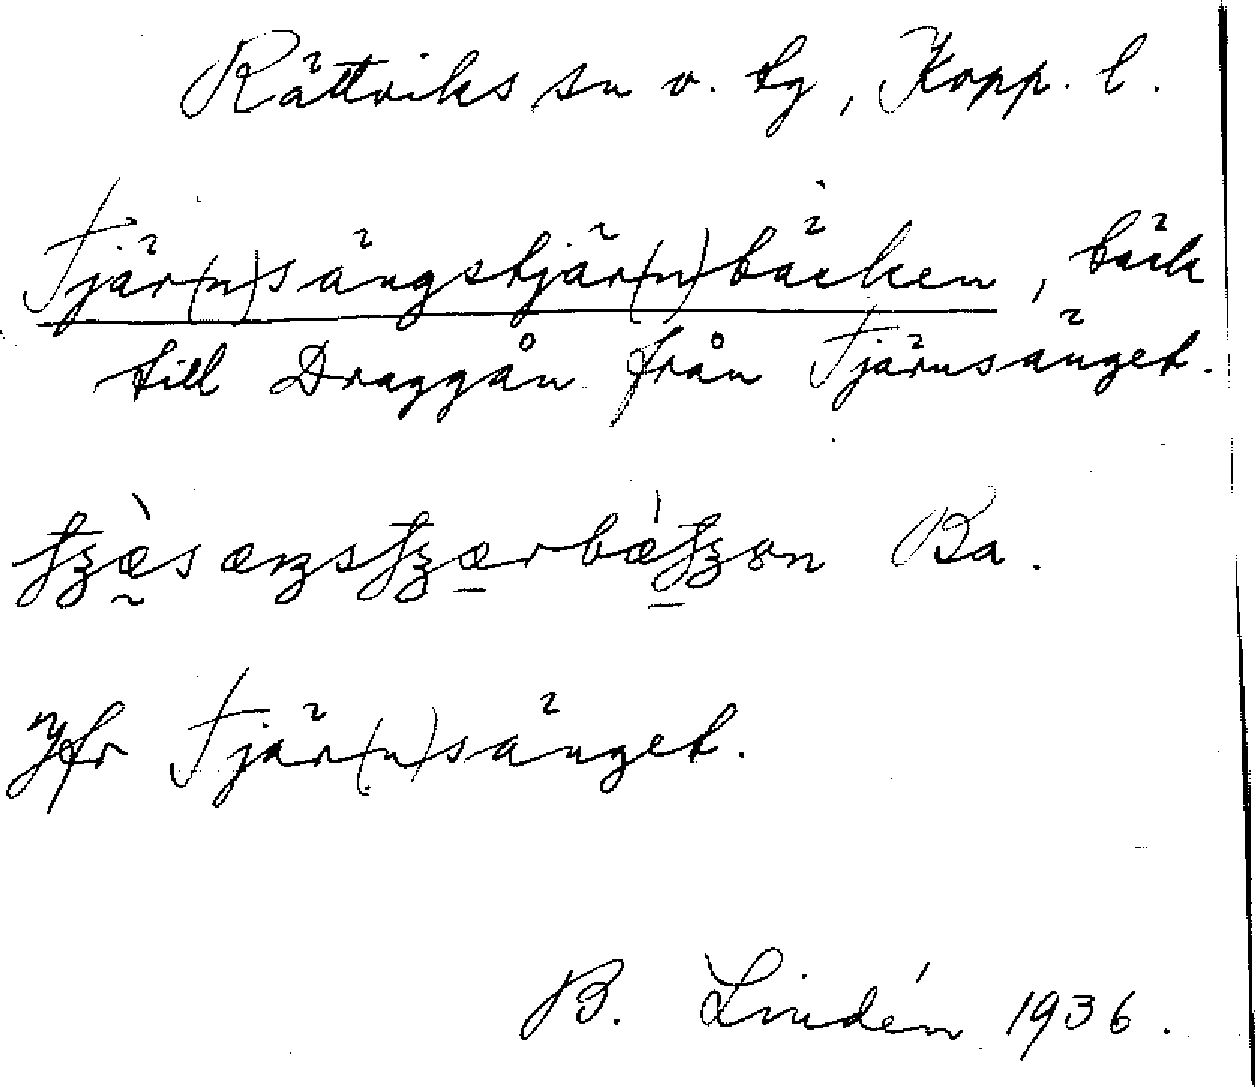 Rättviks sn v. tg, Kopp. l.
Tjär(n)sängstjär(n)bäcken, bäck
till Draggån från Tjärnsänget.
Ba.
Jfr Tjär(n)sänget.
B. Lindén 1936.